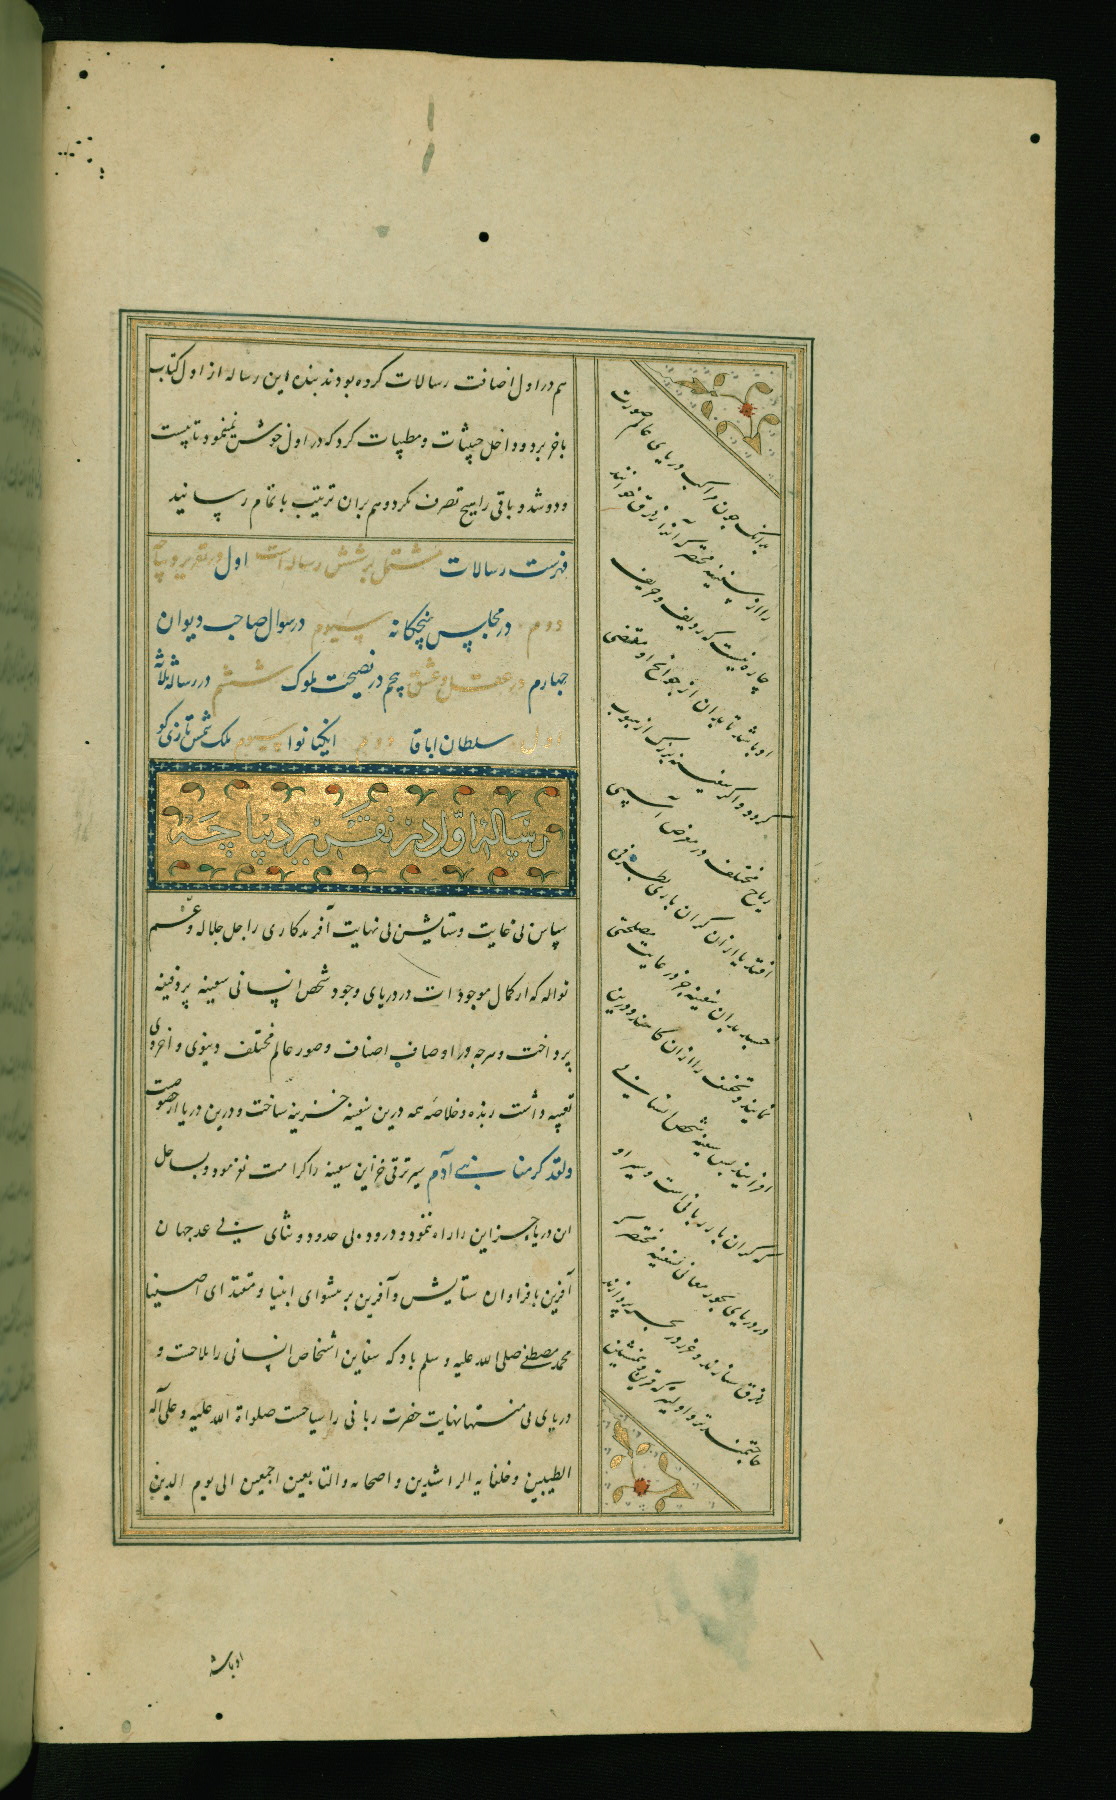 هم در اول اضافت رسالات کرده بودند بنده این رساله از اول کتاب
باخر برد و داخل خبیثات و مطیبات کرد که در اول خوش نمینمود تا بیست
و دو شد و باقی را هیچ تصرف نکرد و هم بران ترتیب باتمام رسانید
فهرست رسالات مشتمل بر شش رساله است اول در تقریر دیباچه
دوم در مجلس پنجگانه سیوم در سوال صاحب دیوان
چهارم در عقل و عشق پنجم در نصیحت ملوک ششم در رساله ثلاثه
اول سلطان اباقا دوم انکیانوا سیوم ملک شمس تازی کو
رساله اول در تقریر دیباچه
سپاس بی غایت و ستایش بی نهایت آفریدکاری را جل جلاله و عم
نواله که از کمال موجودات در دریای وجود شخص انسانی سفینه پردفینه
پرداخت و هرچه در اوصاف اصناف و صور عالم مختلف دنیوی و اخروی
تعبیه داشت زبده و خلاصه همه درین سفینه خزینه ساخت و درین دریا از خصوصیت
ولقد کرمنا بنی آدم سیر ترقی جز این سفینه را کرامت نفرمود و بساحل
این دریا جز این را راه ننمود و درود بی حد و ثنای بی عد جهان
آفرین با فراوان ستایش و آفرین بر پیشوای انبیا و مقتدای اصفیا
محمد مصطفی صلی الله علیه و سلم باد که سفاین اشخاص انسانی را ملاحت و
دریای بی منتها نهایت حضرت ربانی را سیاحست صلواة الله علیه و علی آله
الطیبین و خلفایه الراشدین و اصحابه والتابعین اجمعین الی یوم الدین
بدانک چون مراکب دریای عالم صورت
را از سفینه مختصر که آنرا زورق خوانند
چاره نیست که ردیف و حریف
او باشد تا بدان از حوایج او مقضی
کردد و اگر سفینه بزرک از هبوب
ریاح مختلف در معرض آسیبی
افتد یا از ان کران باری بطرفی
حسب بدان سفینه جز در عایت مصلحتی
نمایند و تخفیف را از ان
افزایند پس سفینه شخص انسانی
که کران بار ربانی است و سیر او
در دریای بحور معانی سفینه مختصر کر
زورق سازند و غرر درر بحر پردازند
حاجتمندتر و اولیتر که قرین و همنشین
او باشد